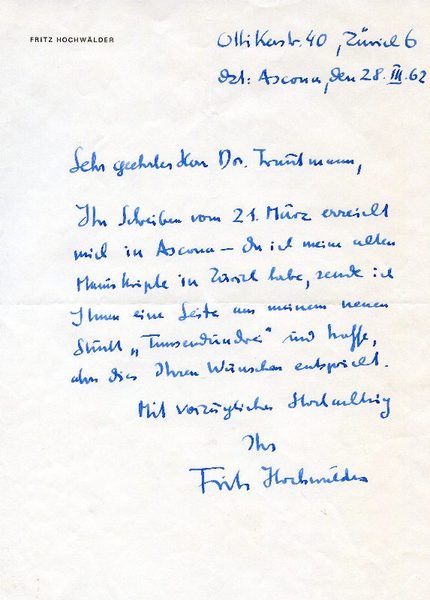 FRITZ HOCHWÄLDER
Ottikerstr. 40, Zürich 6
dzt: Ascona, den 28. III. 62
Sehr geehrter Herr Dr. Trautmann,
Ihr Schreiben vom 21. März erreicht
mich in Ascona – da ich meine alten
Manuskripte in Zürich habe, sende ich
Ihnen eine Seite aus meinem neuen
Stück „Tausendundrei" und hoffe,
dass dies Ihren Wünschen entspricht.
Mit vorzüglicher Hochachtung
Ihr
Fritz Hochwälder